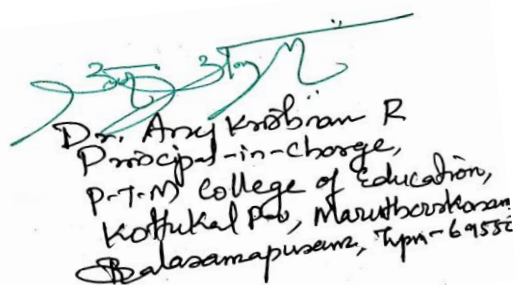 Dr. Anoj Krishnan R
Principal-in-Charge,
P.T.M College of Education,
Kottukal P.O, Maruthoorkonam
Balaramapuram, Tvpm-69550